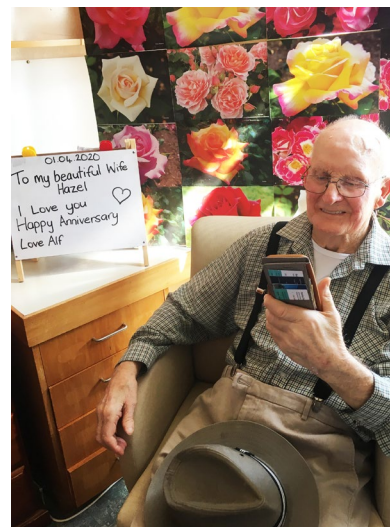 01.04.2020
To my beautiful Wife
Hazel
I Love you
Happy Anniversary
Love Alf